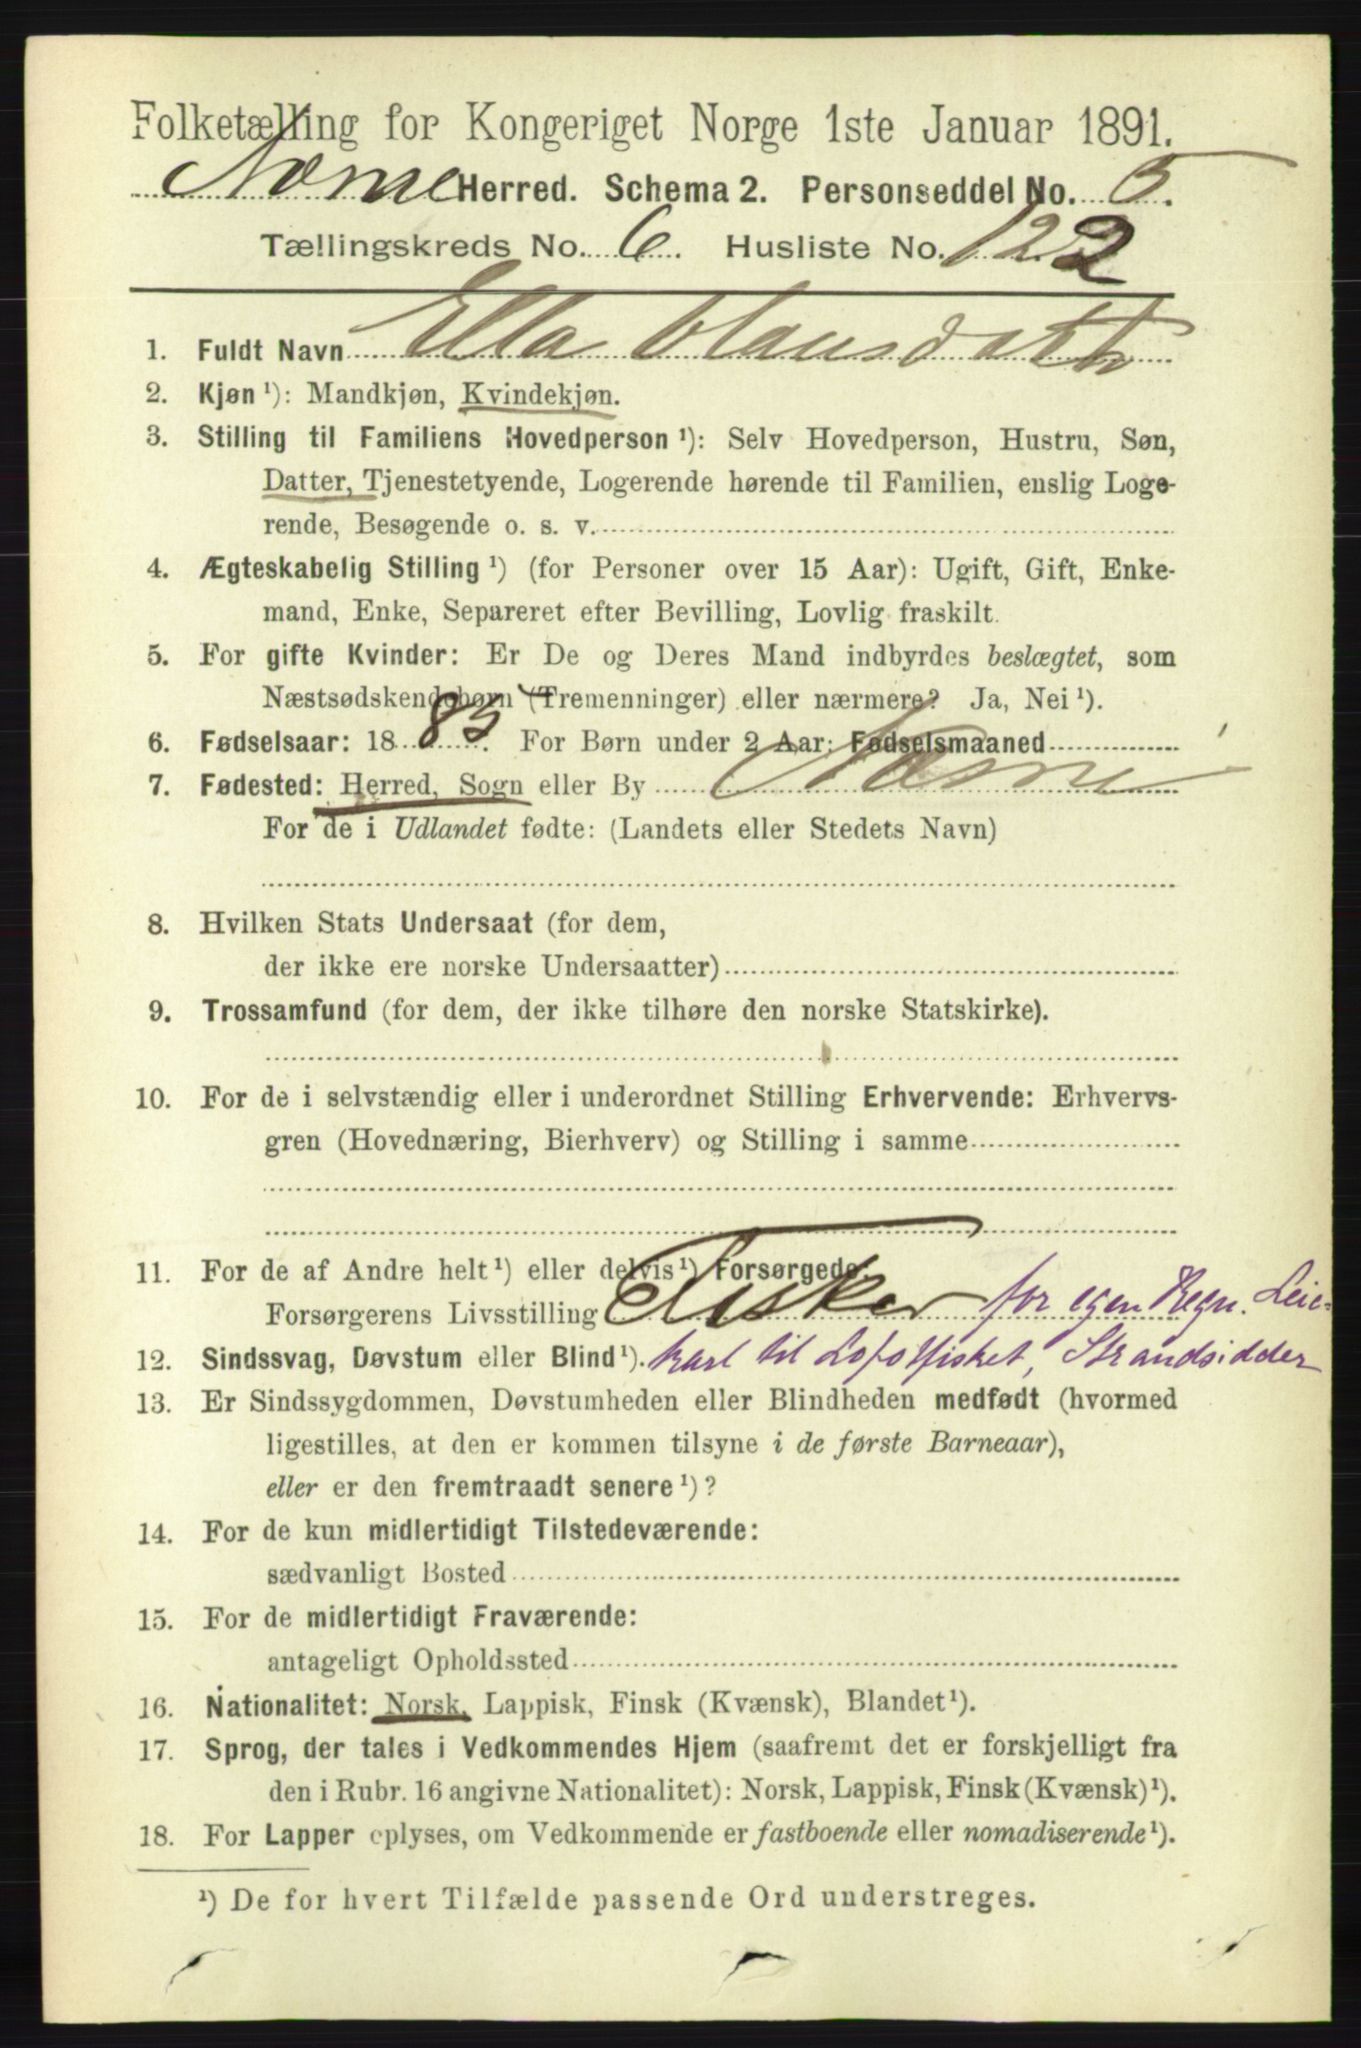 Folketælling for Kongeriget Norge 1ste Januar 1891.
Næsne Herred. Schema 2. Personseddel No. 5.
Tællingskreds No. 6. Husliste No. 122
1. Fuldt Navn Ella Hansdattr
2. Kjøn ¹): Mandkjøn, Kvindekjøn.
3. Stilling til Familiens Hovedperson ¹): Selv Hovedperson, Hustru, Søn,
Datter, Tjenestetyende, Logerende hørende til Familien, enslig Loge-
rende, Besøgende o. s. v.
4. Ægteskabelig Stilling ¹) (for Personer over 15 Aar): Ugift, Gift, Enke-
mand, Enke, Separeret efter Bevilling, Lovlig fraskilt.
5. For gifte Kvinder: Er De og Deres Mand indbyrdes beslægtet, som
Næstsødskendebørn (Tremenninger) eller nærmere? Ja, Nei ¹).
6. Fødselsaar: 1883. For Børn under 2 Aar: Fødselsmaaned
7. Fødested: Herred, Sogn eller By Næsne
For de i Udlandet fødte: (Landets eller Stedets Navn)
8. Hvilken Stats Undersaat (for dem,
der ikke ere norske Undersaatter)
9. Trossamfund (for dem, der ikke tilhøre den norske Statskirke).
10. For de i selvstændig eller i underordnet Stilling Erhvervende: Erhvervs-
gren (Hovednæring, Bierhverv) og Stilling i samme
11. For de af Andre helt ¹) eller delvis ¹) Forsørgede.
Forsørgerens Livsstilling Fisker for egen Regn. Leie-
12. Sindssvag, Døvstum eller Blind ¹). karl til Lofotfisket, Strandsidder
13. Er Sindssygdommen, Døvstumheden eller Blindheden medfødt (hvormed
ligestilles, at den er kommen tilsyne i de første Barneaar),
eller er den fremtraadt senere ¹)?
14. For de kun midlertidigt Tilstedeværende:
sædvanligt Bosted
15. For de midlertidigt Fraværende:
antageligt Opholdssted
16. Nationalitet: Norsk, Lappisk, Finsk (Kvænsk), Blandet ¹).
17. Sprog, der tales i Vedkommendes Hjem (saafremt det er forskjelligt fra
den i Rubr. 16 angivne Nationalitet): Norsk, Lappisk, Finsk (Kvænsk) ¹).
18. For Lapper oplyses, om Vedkommende er fastboende eller nomadiserende ¹).
¹) De for hvert Tilfælde passende Ord understreges.